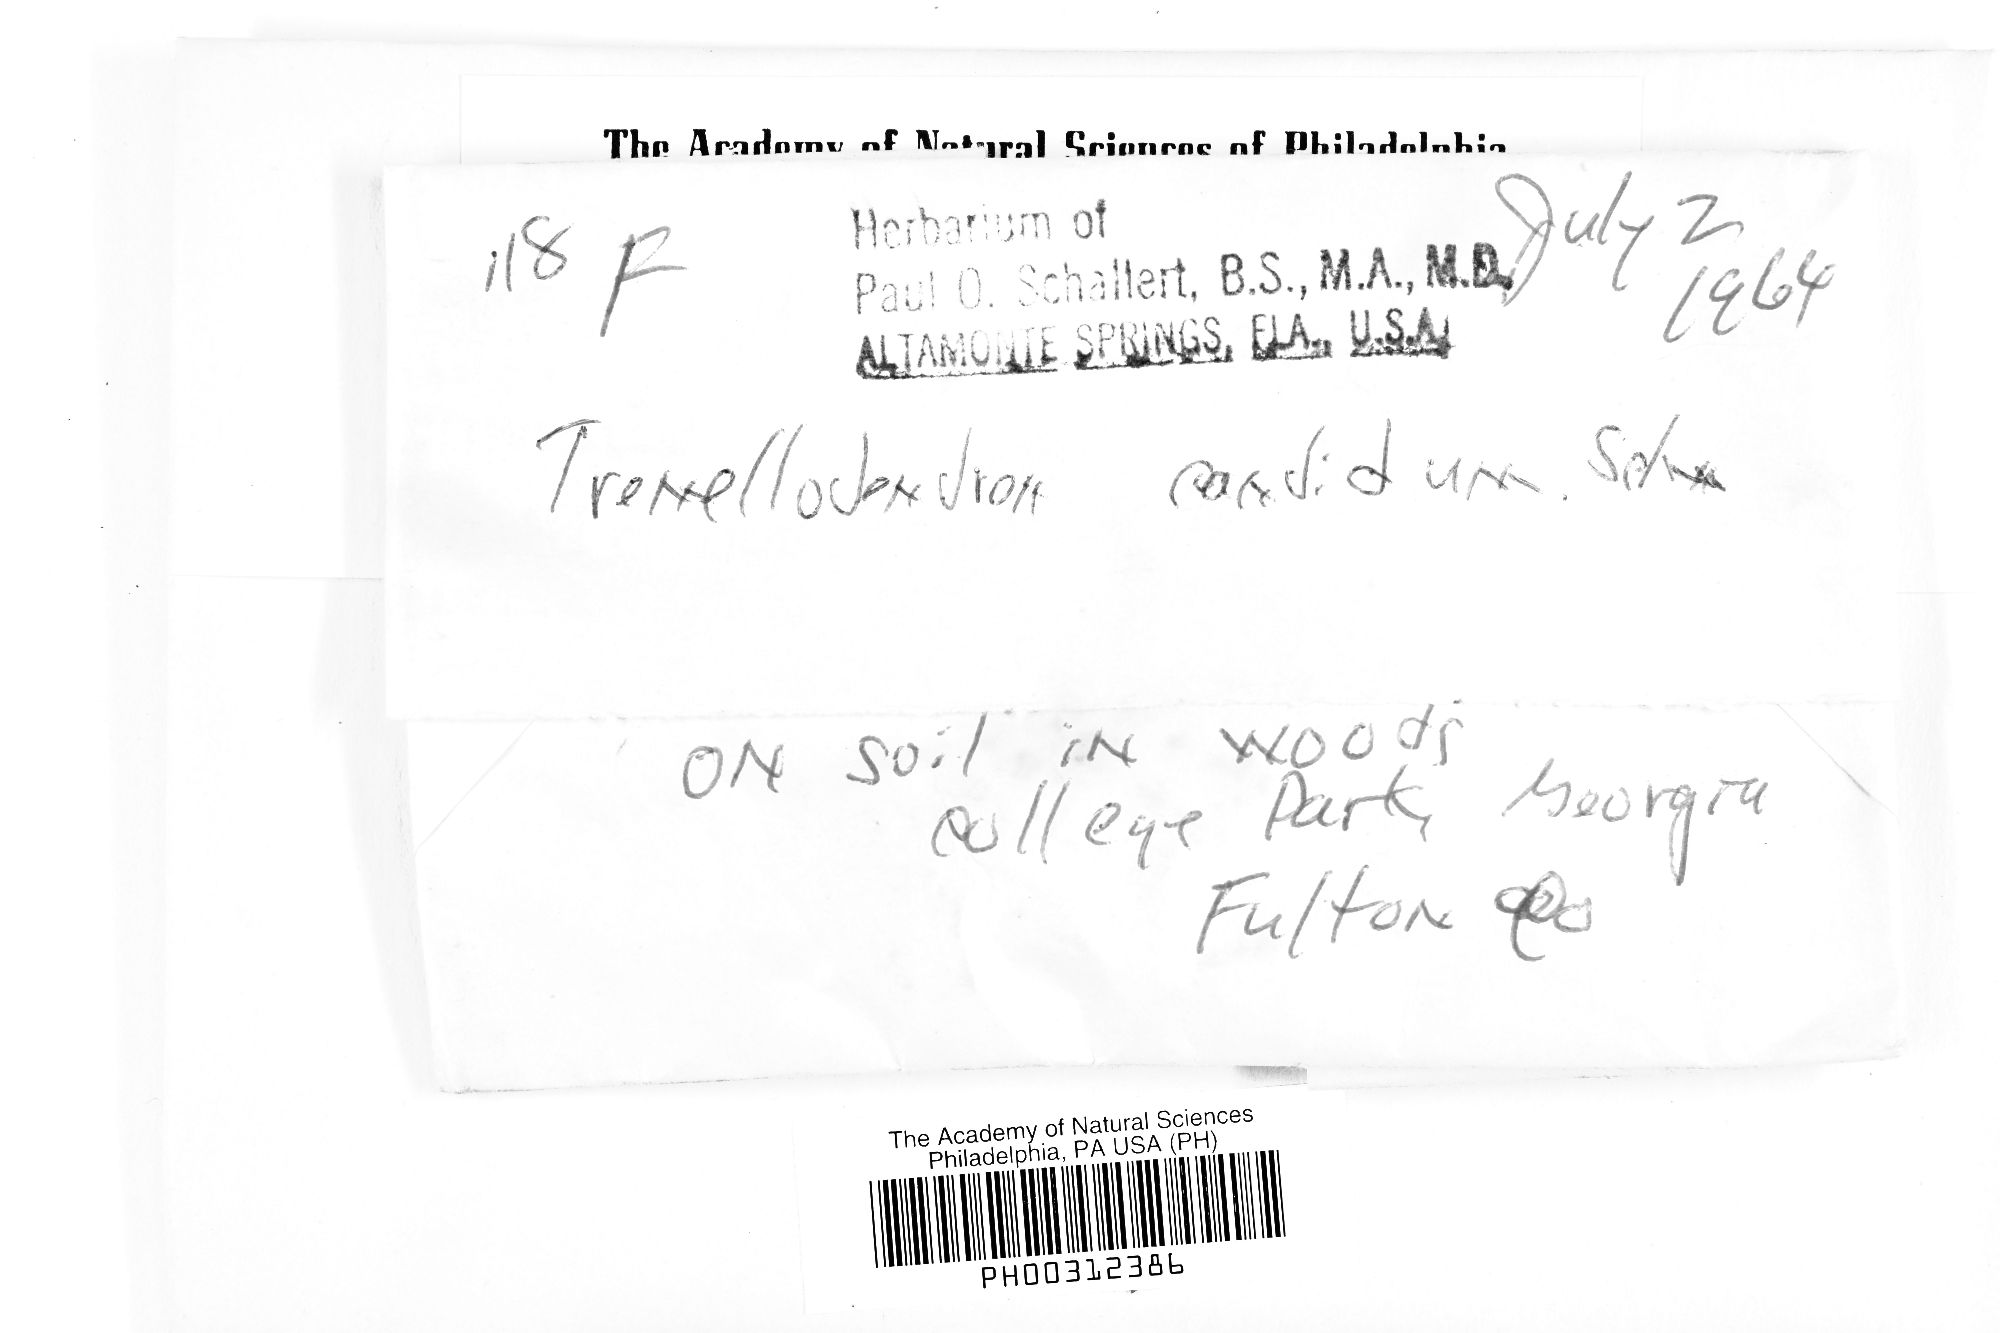 The Academy of Natural Sciences of Philadelphia
118 F
Herbarium of
Paul O. Schallert, B.S., M.A., M.D.
ALTAMONTE SPRINGS, FLA., U.S.A.
July 2
1964
Tremellodendron candidum. Schw
ON soil in woods
College Park, Georgia
Fulton Co
The Academy of Natural Sciences
Philadelphia, PA USA (PH)
PH00312386